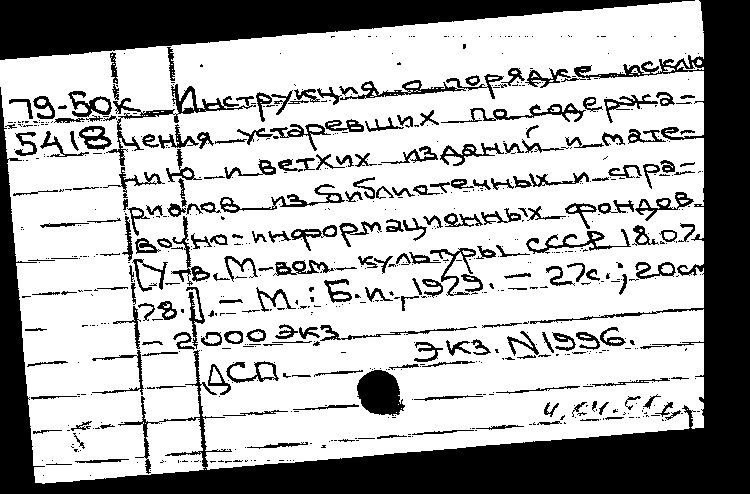 79-50к Инструкция о порядке исклю
5418 чения устаревших по содержа-
нию и ветхих изданий и мате-
риалов из библиотечных и спра-
вочно-информационных фондов
[Утв. М-вом культуры СССР 18.07.
78.]. – М.: Б.и., 1979. – 27с.; 20см
– 2000 экз.
Экз. N 1996.
ДСП.